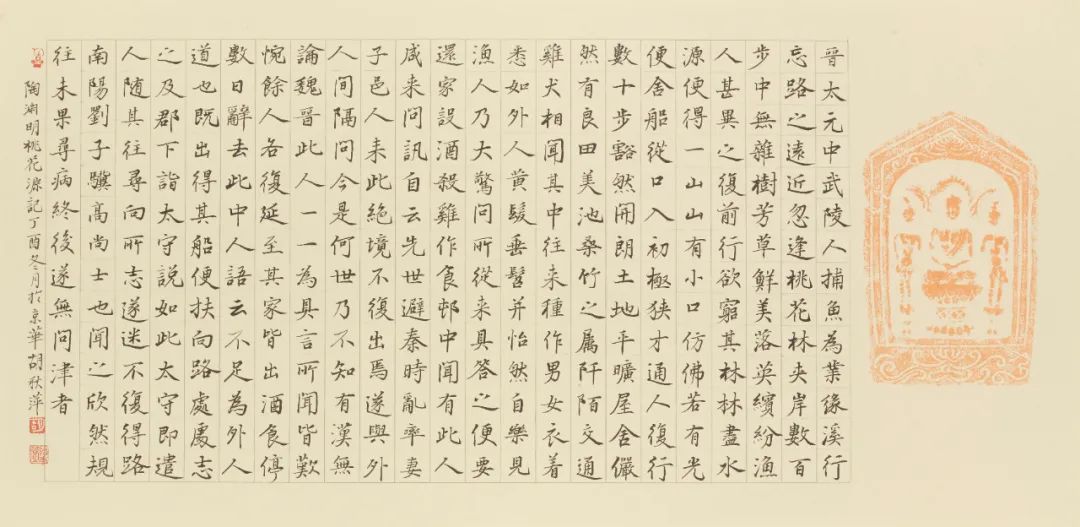 晉太元中武陵人捕魚為業緣溪行
忘路之遠近忽逢桃花林夾岸數百
步中無雜樹芳草鮮美落英繽紛漁
人甚異之復前行欲窮其林林盡水
源便得一山山有小口仿佛若有光
便舍船從口入初極狹才通人復行
數十步豁然開朗土地平曠屋舍儼
然有良田美池桑竹之属阡陌交通
雞犬相聞其中往来種作男女衣着
悉如外人黄髮垂髫并怡然自樂見
漁人乃大驚問所從来具答之便要
還家設酒殺雞作食邨中聞有此人
咸来問訊自云先世避秦時亂率妻
子邑人来此絶境不復出焉遂與外
人間隔問今是何世乃不知有漢無
論魏晉此人一一為具言所聞皆歎
惋餘人各復延至其家皆出酒食停
數日辭去此中人語云不足為外人
道也既出得其船便扶向路處處志
之及郡下詣太守説如此太守即遣
人随其往尋向所志遂迷不復得路
南陽劉子驥高尚士也聞之欣然規
往未果尋病終後遂無問津者
陶淵明桃花源記丁酉冬月於京華胡秋萍